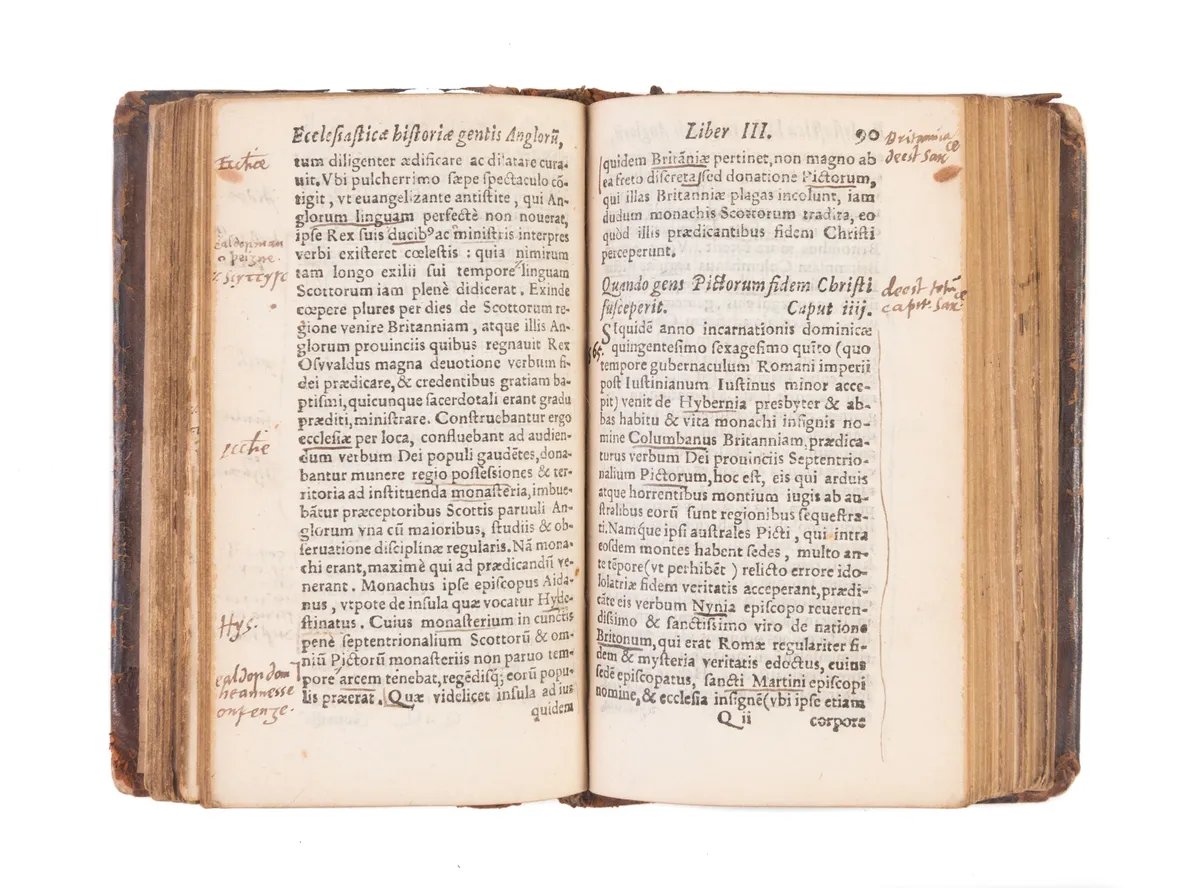 Ecclesiasticæ historiæ gentis Anglorū,
tum diligenter ædificare ac dilatare cura-
uit. Vbi pulcherrimo sæpe spectaculo cō-
tigit, vt euangelizante antistite, qui An-
glorum linguam perfectè non nouerat,
ipse Rex suis ducibꝰ ac ministris interpres
verbi existeret cœlestis : quia nimirum
tam longo exilii sui tempore linguam
Scottorum iam plenè didicerat. Exinde
cœpere plures per dies de Scottorum re-
gione venire Britanniam, atque illis An-
glorum prouinciis quibus regnauit Rex
Osvvaldus magna deuotione verbum fi-
dei prædicare, & credentibus gratiam ba-
ptismi, quicunque sacerdotali erant gradu
præditi, ministrare. Construebantur ergo
ecclesiæ per loca, confluebant ad audien-
dum verbum Dei populi gaudētes, dona-
bantur munere regio possessiones & ter-
ritoria ad instituenda monasteria, imbue-
bātur præceptoribus Scottis paruuli An-
glorum vna cū maioribus, studiis & ob-
seruatione disciplinæ regularis. Nā mona-
chi erant, maximè qui ad prædicandū ve-
nerant. Monachus ipse episcopus Aida-
nus, vtpote de insula quæ vocatur Hyde-
stinatus. Cuius monasterium in cunctis
penè septentrionalium Scottorū & om-
niū Pictorū monasteriis non paruo tem-
pore arcem tenebat, regēdisq; eorū popu-
lis præerat. Quæ videlicet insula ad ius
quidem
Hys.
Liber III.
90
quidem Britāniæ pertinet, non magno ab
ea freto discreta, sed donatione Pictorum,
qui illas Britanniæ plagas incolunt, iam
dudum monachis Scottorum tradita, eo
quòd illis prædicantibus fidem Christi
perceperunt.
Quando gens Pictorum fidem Christi
susceperit. Caput iiij.
SIquidē anno incarnationis dominicæ
quingentesimo sexagesimo quīto (quo
tempore gubernaculum Romani imperii
post Iustinianum Iustinus minor acce-
pit) venit de Hybernia presbyter & ab-
bas habitu & vita monachi insignis no-
mine Columbanus Britanniam, prædica-
turus verbum Dei prouinciis Septentrio-
nalium Pictorum, hoc est, eis qui arduis
atque horrentibus montium iugis ab au-
stralibus eorū sunt regionibus sequestra-
ti. Namque ipsi australes Picti, qui intra
eosdem montes habent sedes, multo an-
te tēpore (vt perhibēt) relicto errore ido-
lolatriæ fidem veritatis acceperant, prædi-
cāte eis verbum Nynia episcopo reueren-
dissimo & sanctissimo viro de natione
Britonum, qui erat Romæ regulariter fi-
dem & mysteria veritatis edoctus, cuius
sedē episcopatus, sancti Martini episcopi
nomine, & ecclesia insignē (vbi ipse etiam
Q ii corpore
Britannia
deest Sax
deest totū
capit. Sax